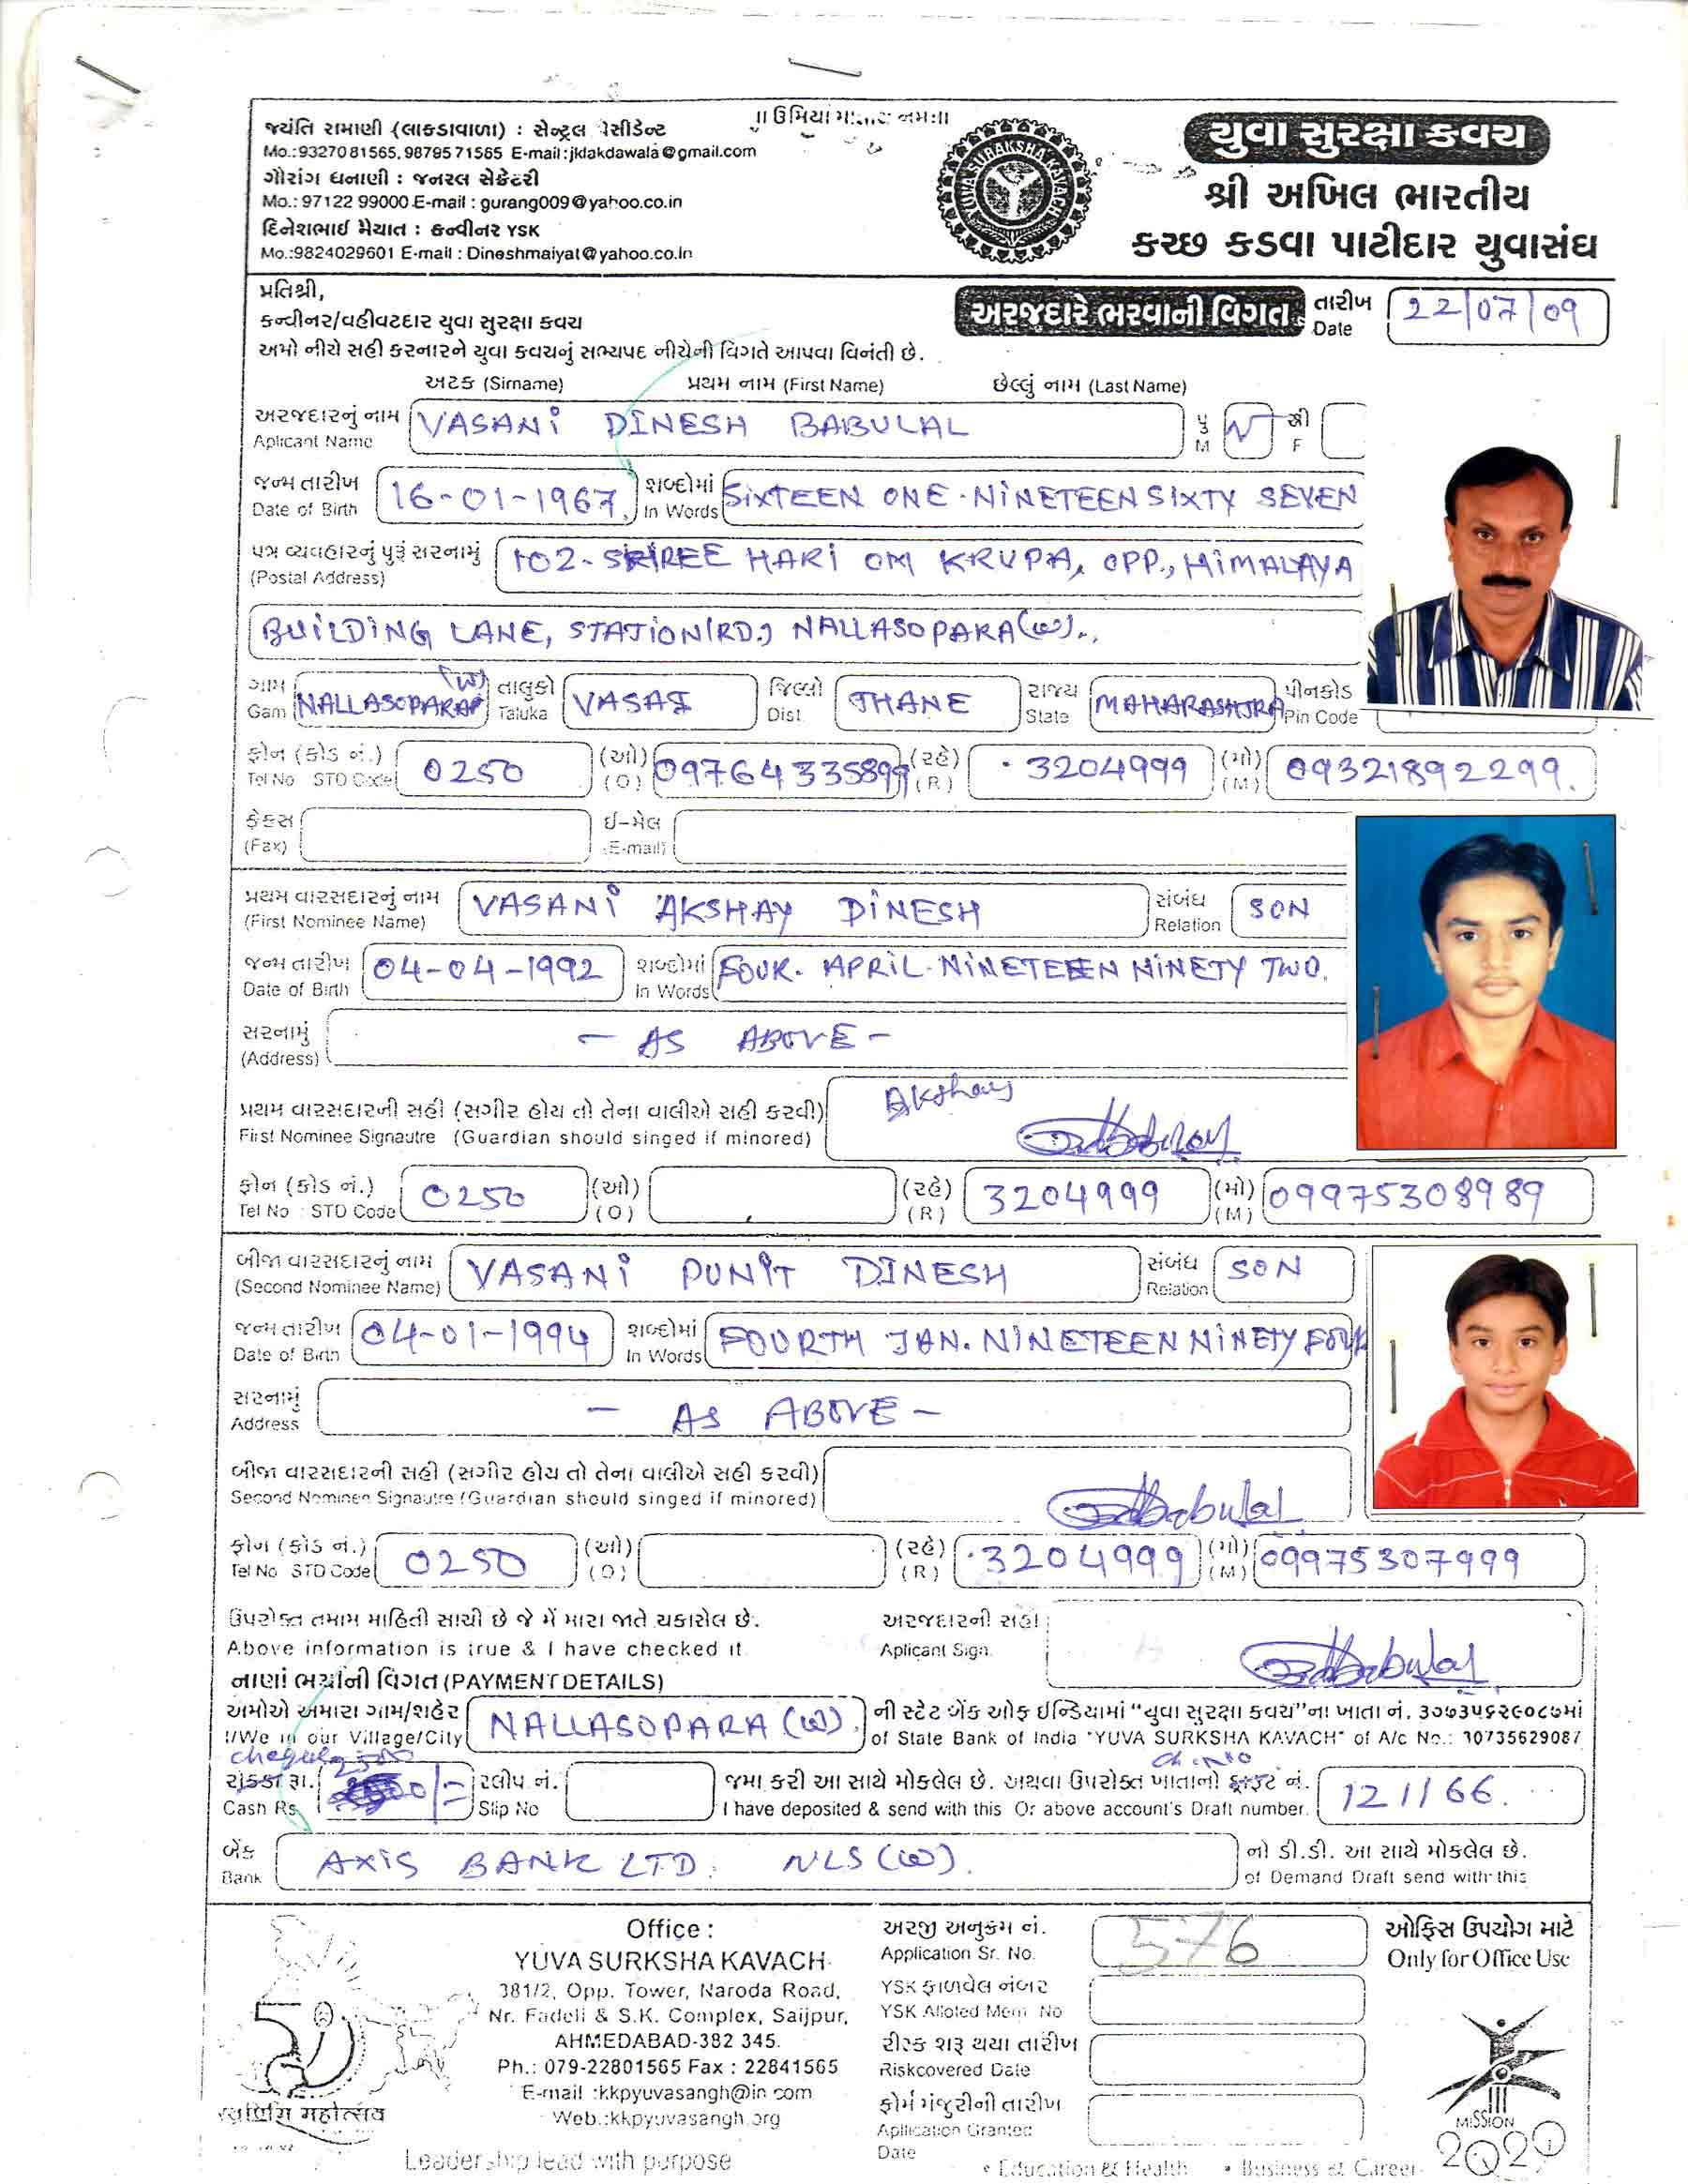 ॥ ઉમિયા માતાય નમઃ॥
જયંતિ રામાણી (લાકડાવાળા) : સેન્ટ્રલ પ્રેસીડેન્ટ
Mo.:9327081565, 9879571565 E-mail:jklakdawala@gmail.com
ગૌરાંગ ધનાણી : જનરલ સેક્રેટરી
Mo.: 97122 99000 E-mail : gurang009@yahoo.co.in
દિનેશભાઈ મૈયાત : કન્વીનર YSK
Mo.:9824029601 E-mail : Dineshmaiyat@yahoo.co.in
YUVA SURAKSHA KAVACH
યુવા સુરક્ષા કવચ
શ્રી અખિલ ભારતીય
કચ્છ કડવા પાટીદાર યુવાસંઘ
પ્રતિશ્રી,
કન્વીનર/વહીવટદાર યુવા સુરક્ષા કવચ
અરજદારે ભરવાની વિગત તારીખ Date 22/07/09
અમો નીચે સહી કરનારને યુવા કવચનું સભ્યપદ નીચેની વિગતે આપવા વિનંતી છે.
અટક (Sirname) પ્રથમ નામ (First Name) છેલ્લું નામ (Last Name)
અરજદારનું નામ Aplicant Name VASANI DINESH BABULAL પુ M સ્ત્રી F
જન્મ તારીખ Date of Birth 16-01-1967 શબ્દોમાં In Words SIXTEEN ONE-NINETEEN SIXTY SEVEN
પત્ર વ્યવહારનું પુરૂં સરનામું (Postal Address) 102- SHREE HARI OM KRUPA, OPP., HIMALAYA
BUILDING LANE, STATION(RD.) NALLASOPARA(W).,
ગામ Gam NALLASOPARA (W) તાલુકો Taluka VASAI જિલ્લો Dist THANE રાજ્ય State MAHARASHTRA પીનકોડ Pin Code
ફોન (કોડ નં.) Tel No STD Code 0250 (ઓ) (O) 09764335899 (રહે) (R) 3204999 (મો) (M) 09321892299.
ફેક્સ (Fax) ઈ-મેલ E-mail)
પ્રથમ વારસદારનું નામ (First Nominee Name) VASANI AKSHAY DINESH સંબંધ Relation SON
જન્મ તારીખ Date of Birth 04-04-1992 શબ્દોમાં In Words FOUR. APRIL-NINETEEN NINETY TWO.
સરનામું (Address) - AS ABOVE -
પ્રથમ વારસદારની સહી (સગીર હોય તો તેના વાલીએ સહી કરવી) Akshay
First Nominee Signautre (Guardian should singed if minored)
ફોન (કોડ નં.) Tel No STD Code 0250 (ઓ) (O) (રહે) (R) 3204999 (મો) (M) 09975308989
બીજા વારસદારનું નામ (Second Nominee Name) VASANI PUNIT DINESH સંબંધ Relation SON
જન્મ તારીખ Date of Birth 04-01-1994 શબ્દોમાં In Words FOURTH JAN. NINETEEN NINETY FOUR
સરનામું Address - AS ABOVE -
બીજા વારસદારની સહી (સગીર હોય તો તેના વાલીએ સહી કરવી)
Second Nominee Signautre (Guardian should singed if minored)
ફોન (કોડ નં.) Tel No STD Code 0250 (ઓ) (O) (રહે) (R) 3204999 (મો) (M) 09975307999
ઉપરોક્ત તમામ માહિતી સાચી છે જે મેં મારા જાતે ચકાસેલ છે. અરજદારની સહી
Above information is true & I have checked it Aplicant Sign.
નાણાં ભર્યાની વિગત (PAYMENT DETAILS)
અમોએ અમારા ગામ/શહેર NALLASOPARA (W). ની સ્ટેટ બેંક ઓફ ઈન્ડિયામાં "યુવા સુરક્ષા કવચ"ના ખાતા નં. ૩૦૭૩૫૬૨૯૦૮૭માં
I/We in our Village/City of State Bank of India "YUVA SURKSHA KAVACH" of A/c No.: 30735629087
રોકડા રૂા. Cash Rs. 2500 /= સ્લીપ નં. Slip No જમા કરી આ સાથે મોકલેલ છે. અથવા ઉપરોક્ત ખાતાનો ડ્રાફ્ટ નં. ch. no 121166.
I have deposited & send with this Or above account's Draft number.
બેંક Bank AXIS BANK LTD. NLS (W). નો ડી.ડી. આ સાથે મોકલેલ છે.
of Demand Draft send with this
Office :
YUVA SURKSHA KAVACH
381/2, Opp. Tower, Naroda Road,
Nr. Fadeli & S.K. Complex, Saijpur,
AHMEDABAD-382 345.
Ph.: 079-22801565 Fax : 22841565
E-mail :kkpyuvasangh@in.com
Web.:kkpyuvasangh.org
અરજી અનુક્રમ નં. Application Sr. No. 576
YSK ફાળવેલ નંબર YSK Alloted Mem No
રીસ્ક શરૂ થયા તારીખ Riskcovered Date
ફોર્મ મંજુરીની તારીખ Aplication Granted Date
ઓફિસ ઉપયોગ માટે
Only for Office Use
MISSION 2020
Leadership lead with purpose • Education & Health • Business & Career